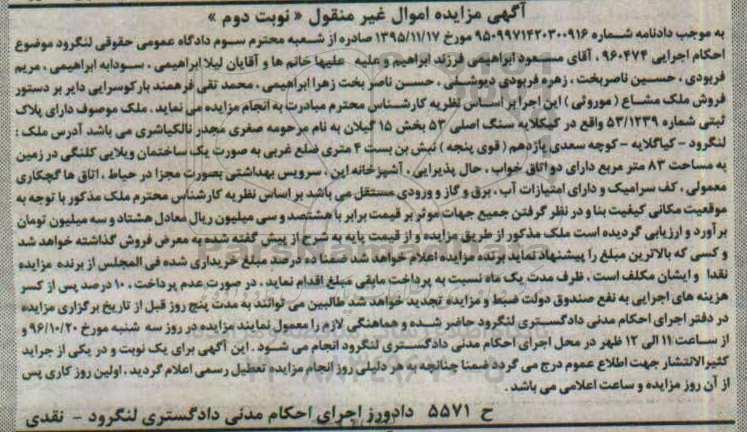 آگهی مزایده اموال غیر منقول « نوبت دوم »
به موجب دادنامه شماره ۹۵۰۹۹۷۱۴۲۰۳۰۰۹۱۶ مورخ ۱۳۹۵/۱۱/۱۷ صادره از شعبه محترم سوم دادگاه عمومی حقوقی لنگرود موضوع
احکام اجرایی ۹۶۰۴۷۴ ، آقای مسعود ابراهیمی فرزند ابراهیم و علیه علیها خانم ها و آقایان لیلا ابراهیمی ، سودابه ابراهیمی ، مریم
فربودی ، حسین ناصربخت ، زهره فربودی دیوشلی ، حسن ناصر بخت زهرا ابراهیمی ، محمد تقی فرهمند بارکوسرایی دایر بر دستور
فروش ملک مشاع ( موروثی ) این اجرا بر اساس نظریه کارشناس محترم مبادرت به انجام مزایده می نماید . ملک موصوف دارای پلاک
ثبتی شماره ۵۳/۱۲۳۹ واقع در کیکلایه سنگ اصلی ۵۳ بخش ۱۵ گیلان به نام مرحومه صغری مجدر نالکیاشری می باشد آدرس ملک :
لنگرود - کیاکلایه - کوچه سعدی یازدهم ( قوی پنجه ) نبش بن بست ۴ متری ضلع غربی به صورت یک ساختمان ویلایی کلنگی در زمین
به مساحت ۸۳ متر مربع دارای دو اتاق خواب ، حال پذیرایی ، آشپزخانه این ، سرویس بهداشتی بصورت مجزا در حیاط ، اتاق ها گچکاری
معمولی ، کف سرامیک و دارای امتیازات آب ، برق و گاز و ورودی مستقل می باشد بر اساس نظریه کارشناس محترم ملک مذکور با توجه به
موقعیت مکانی کیفیت بنا و در نظر گرفتن جمیع جهات موثر بر قیمت برابر با هشتصد و سی میلیون ریال معادل هشتاد و سه میلیون تومان
برآورد و ارزیابی گردیده است ملک مذکور از طریق مزایده و از قیمت پایه به شرح از پیش گفته شده به معرض فروش گذاشته خواهد شد
و کسی که بالاترین مبلغ را پیشنهاد نماید برنده مزایده اعلام خواهد شد ضمنا ده درصد مبلغ خریداری شده فی المجلس از برنده مزایده
نقدا و ایشان مکلف است ، ظرف مدت یک ماه نسبت به پرداخت مابقی مبلغ اقدام نماید ، در صورت عدم پرداخت ، ۱۰ درصد پس از کسر
هزینه های اجرایی به نفع صندوق دولت ضبط و مزایده تجدید خواهد شد طالبین می توانند به مدت پنج روز قبل از تاریخ برگزاری مزایده
در دفتر اجرای احکام مدنی دادگستری لنگرود حاضر شده و هماهنگی لازم را معمول نمایند مزایده در روز سه شنبه مورخ ۹۶/۱۰/۲۰ و
از ساعت ۱۱ الی ۱۲ ظهر در محل اجرای احکام مدنی دادگستری لنگرود انجام می شود . این آگهی برای یک نوبت و در یکی از جراید
کثیرالانتشار جهت اطلاع عموم درج می گردد ضمنا چنانچه به هر دلیلی روز انجام مزایده تعطیل رسمی اعلام گردید ، اولین روز کاری پس
از آن روز مزایده و ساعت اعلامی می باشد .
ح ۵۵۷۱ دادورز اجرای احکام مدنی دادگستری لنگرود - نقدی